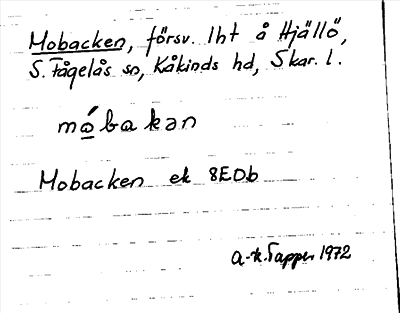 Mobacken, försv. lht å Hjällö,
S. Fågelås sn, Kåkinds hd, Skar. l.
móbakən
Mobacken ek 8E0b
A-K. Tapper 1972